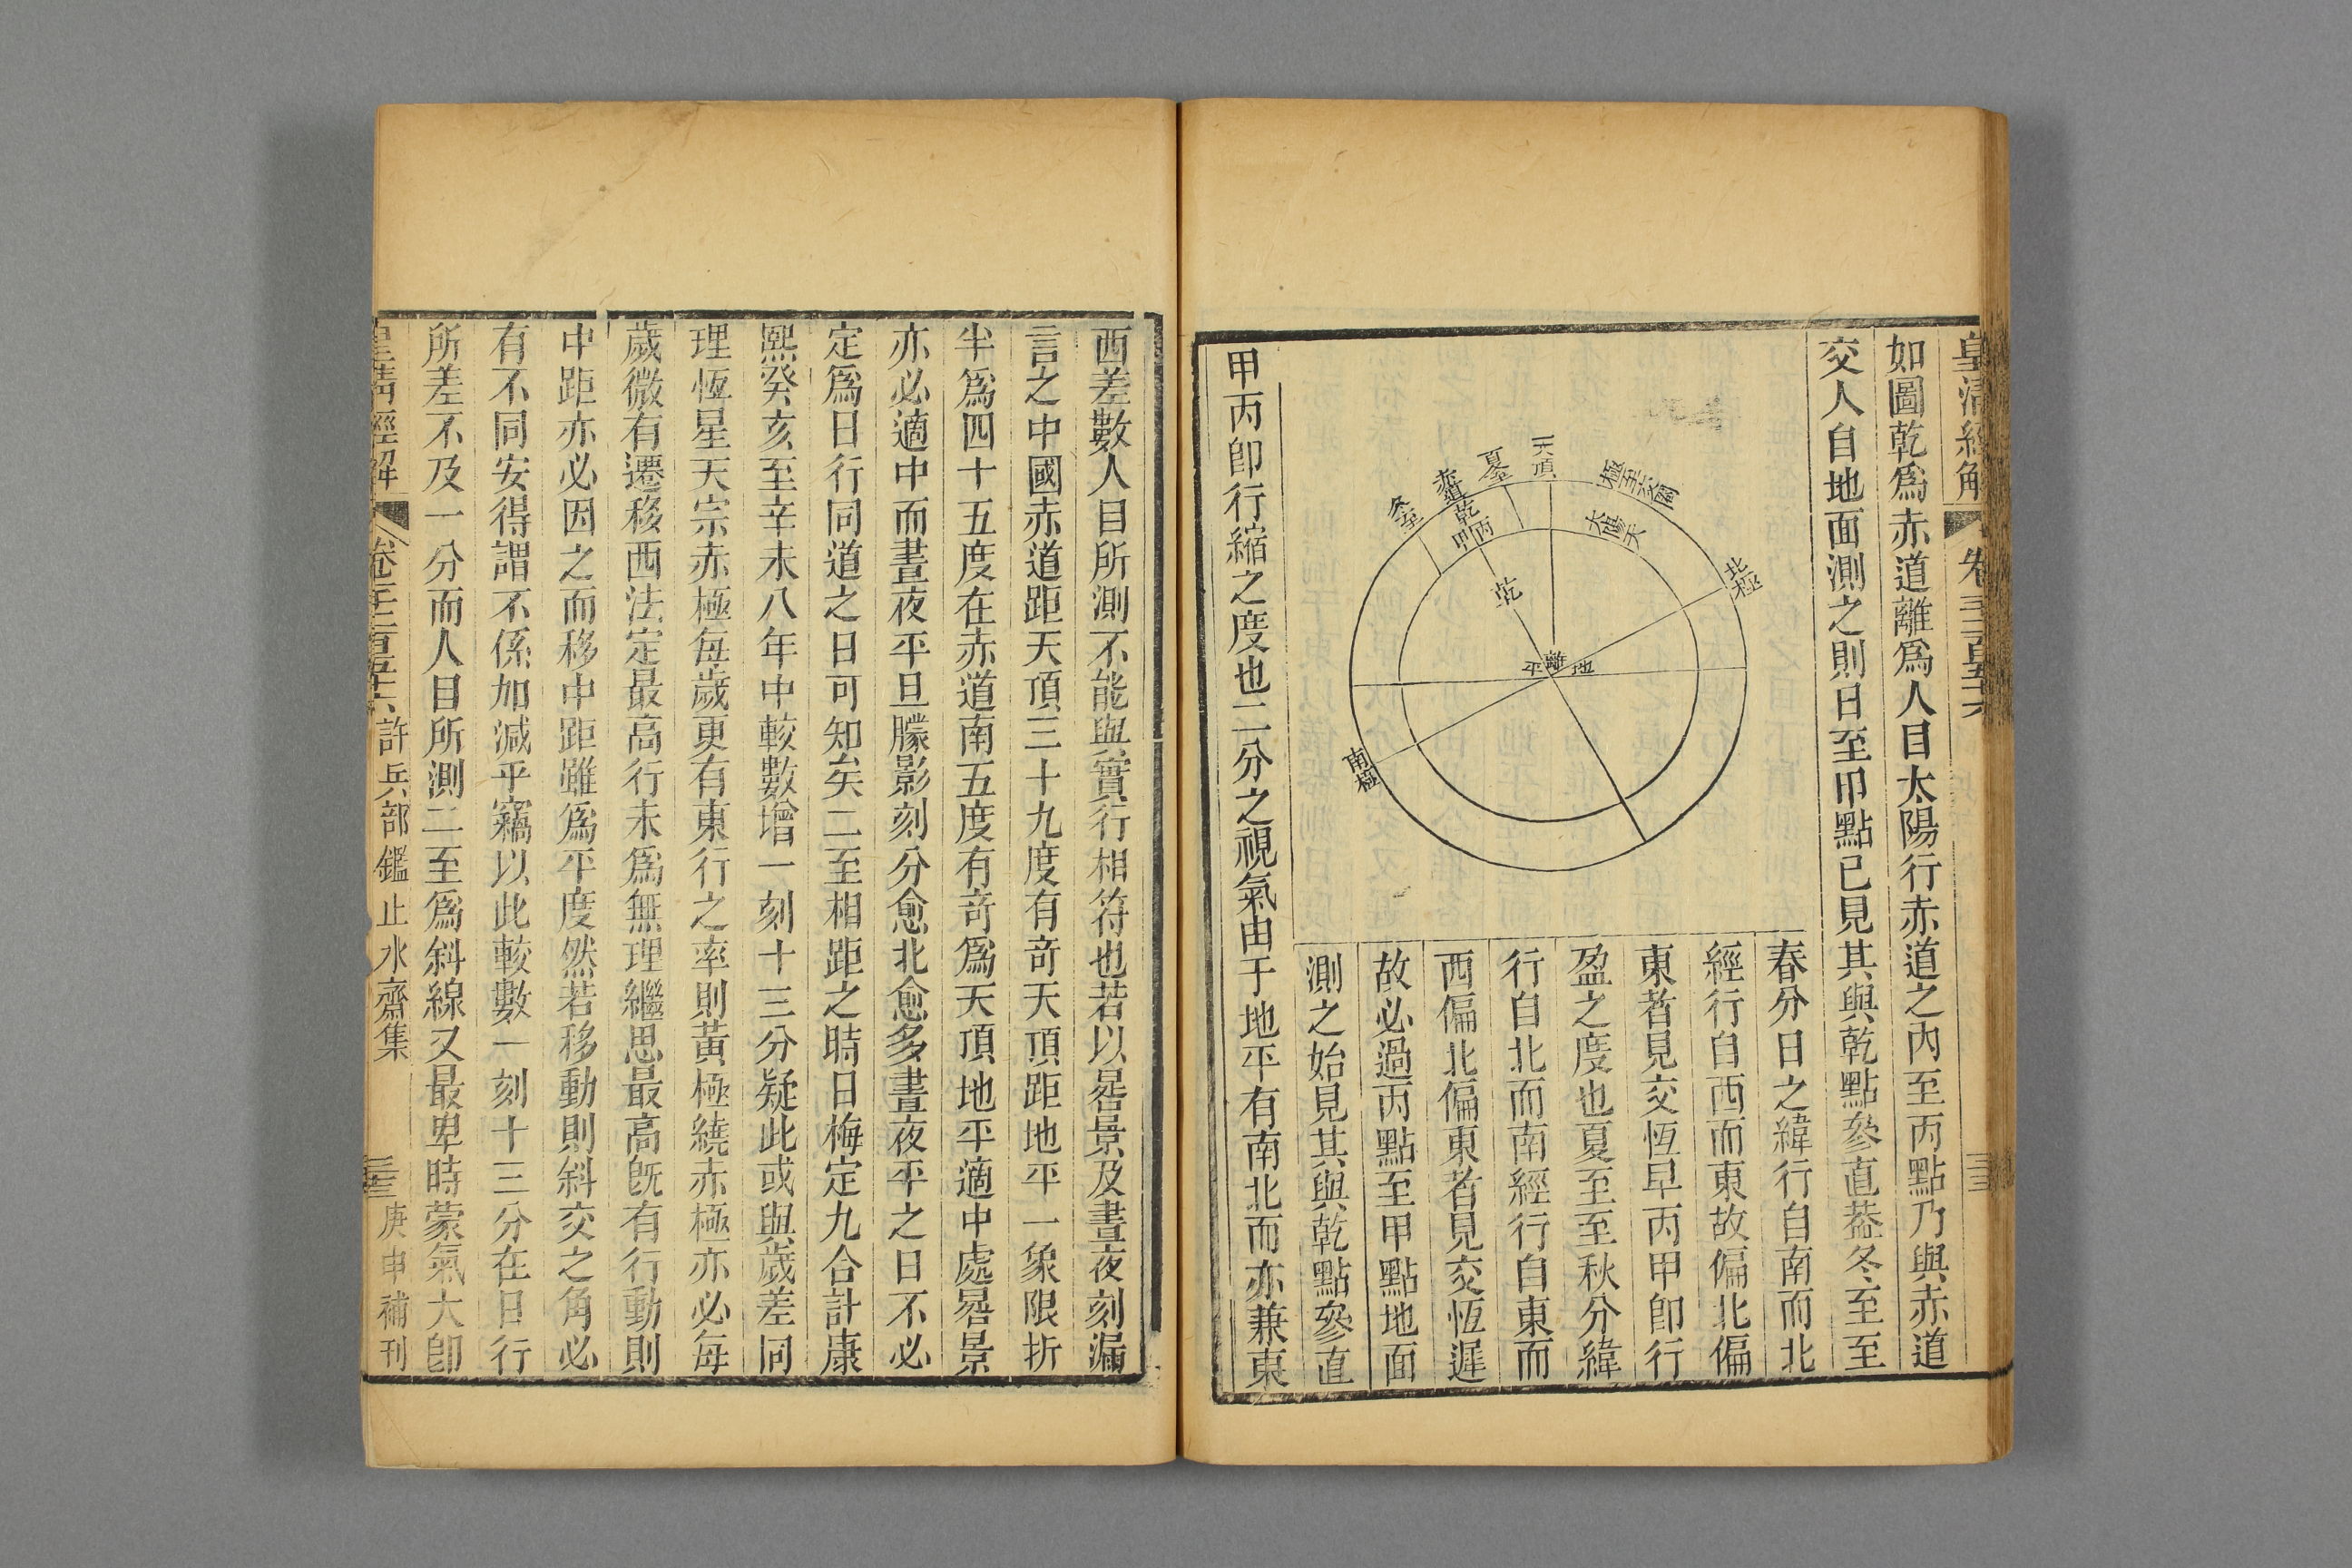 皇清經解
卷三百五十六
三三
如圖乾爲赤道離爲人目太陽行赤道之內至丙點乃與赤道
交人自地面測之則日至甲點已見其與乾點參直葢冬至至
北極
大陽天
極至交圈
天頂
夏至
赤道
冬至
乾
丙
甲
乾
地
離
平
南極
春分日之緯行自南而北
經行自西而東故偏北偏
東者見交恆早丙甲卽行
盈之度也夏至至秋分緯
行自北而南經行自東而
西偏北偏東者見交恆遲
故必過丙點至甲點地面
測之始見其與乾點參直
甲丙卽行縮之度也二分之視氣由于地平有南北而亦兼東
西差數人目所測不能與實行相符也若以晷景及晝夜刻漏
言之中國赤道距天頂三十九度有奇天頂距地平一象限折
半爲四十五度在赤道南五度有奇爲天頂地平適中處晷景
亦必適中而晝夜平旦朦影刻分愈北愈多晝夜平之日不必
定爲日行同道之日可知矣二至相距之時日梅定九合計康
熙癸亥至辛未八年中較數增一刻十三分疑此或與歲差同
理恆星天宗赤極每歲更有東行之率則黃極繞赤極亦必每
歲微有遷移西法定最高行未爲無理繼思最高旣有行動則
中距亦必因之而移中距雖爲平度然若移動則斜交之角必
有不同安得謂不係加減平竊以此較數一刻十三分在日行
所差不及一分而人目所測二至爲斜線又最卑時蒙氣大卽
皇清經解
卷三百五十六
許兵部鑑止水齋集
三三
庚申補刊